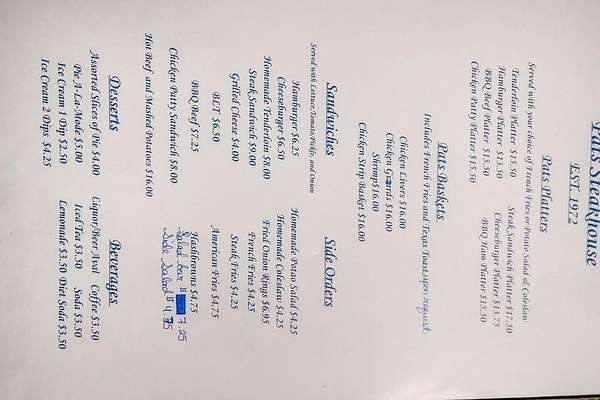 Pats Steakhouse
EST. 1972
Pats Platters
Served with your choice of French Fries or Potato Salad & Coleslaw
Tenderloin Platter $15.50
Steak Sandwich Platter $17.50
Hamburger Platter $15.50
Cheeseburger Platter $13.75
BBQ Beef Platter $15.50
BBQ Ham Platter $15.50
Chicken Patty Platter $15.50
Pats Baskets
Includes French Fries and Texas Toast, upon request.
Chicken Livers $16.00
Chicken Gizards $16.00
Shrimp $16.00
Chicken Strip Basket $16.00
Sandwiches
Served with Lettuce, Tomato, Pickle, and Onion
Hamburger $6.25
Cheeseburger $6.50
Homemade Tenderloin $8.00
Steak Sandwich $9.00
Grilled Cheese $4.00
BLT $6.50
BBQ Beef $7.25
Chicken Patty Sandwich $8.00
Hot Beef and Mashed Potatoes $16.00
Side Orders
Homemade Potao Salad $4.25
Homemade Coleslaw $4.25
Fried Onion Rings $6.95
French Fries $4.25
Steak Fries $4.25
American Fries $4.75
Hashbrowns $4.75
Salad bar $ 7.25
Side Salad $4.75
Desserts
Assorted Slices of Pie $4.00
Pie A-La-Mode $5.00
Ice Cream 1 Dip $2.50
Ice Cream 2 Dips $4.25
Beverages
Liquor/Beer Aval Coffee $3.50
Iced Tea $3.50 Soda $3.50
Lemonade $3.50 Diet Soda $3.50